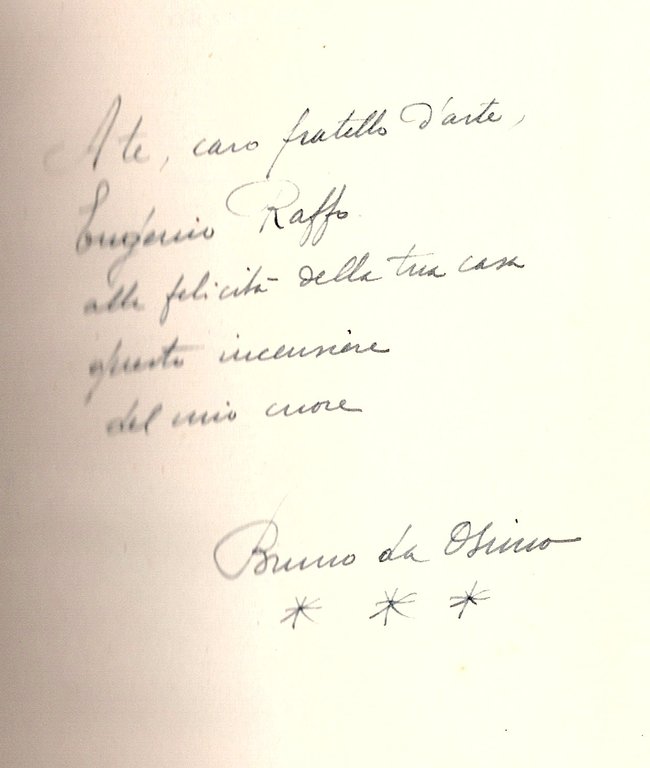 A te, caro fratello d'arte,
Eugenio Raffo
alla felicità della tua casa
questo incensiere
del mio cuore
Bruno da Osimo
* * *